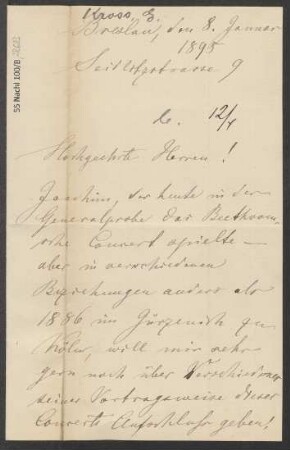 Kross, E.
Breslau, den 8. Januar
1895
Seidlitzstrasse 9
b. 12/1
Hochgeehrte Herren!
Joachim, der heute in der
Generalprobe das Beethoven-
sche Concert spielte –
aber in verschiedenen
Beziehungen anders als
1886 im Gürzenich zu
Köln, will mir sehr
gern noch über Verschiedenes
seiner Vortragsweise dieses
Concerts Aufschluss geben!
55 Nachl 100/B